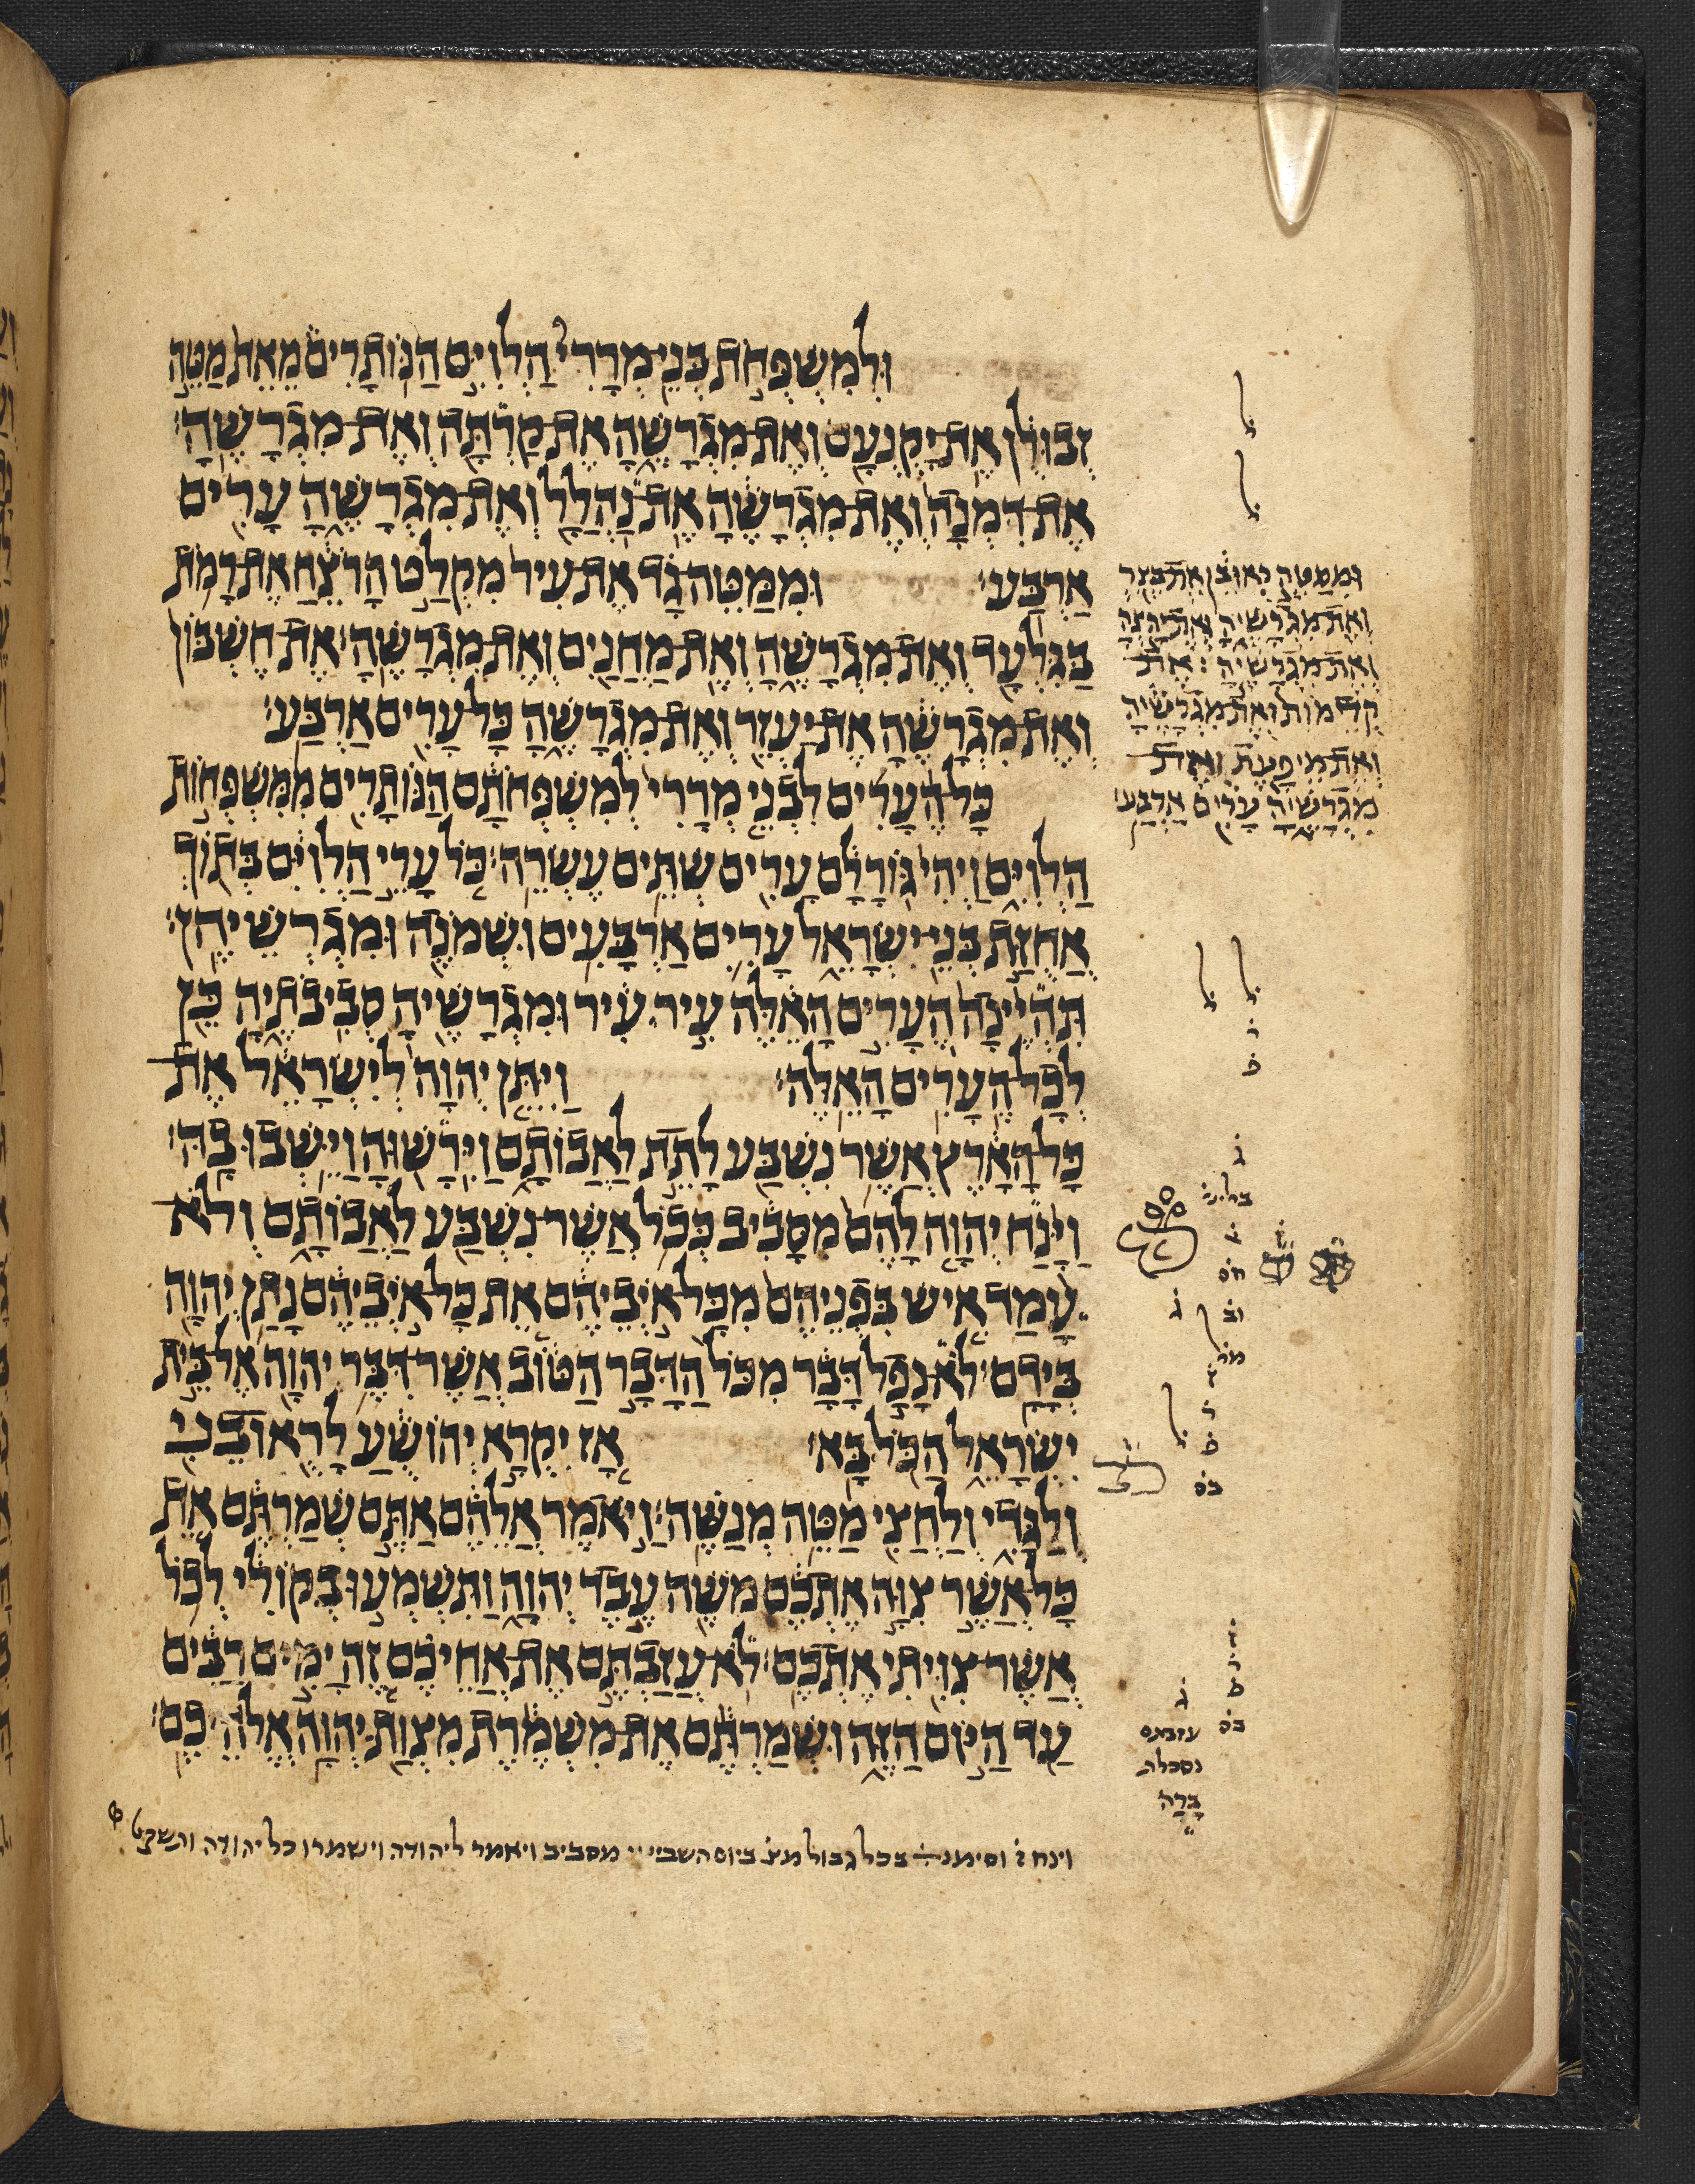 וּלְמִשְׁפְּחֹת בְּנֵי מְרָרִי הַלְוִיִּם הַנּוֹתָרִים מֵאֵת מַטֵּה
זְבוּלֻן אֶת יָקְנְעָם וְאֶת מִגְרָשֶׁהָ אֶת קַרְתָּה וְאֶת מִגְרָשֶׁהָ׃
אֶת דִּמְנָה וְאֶת מִגְרָשֶׁהָ אֶת נַהֲלָל וְאֶת מִגְרָשֶׁהָ עָרִים
אַרְבַּע׃ וּמִמַּטֵּה גָד אֶת עִיר מִקְלַט הָרֹצֵחַ אֶת רָמֹת
בַּגִּלְעָד וְאֶת מִגְרָשֶׁהָ וְאֶת מַחֲנַיִם וְאֶת מִגְרָשֶׁהָ׃ אֶת חֶשְׁבּוֹן
וְאֶת מִגְרָשֶׁהָ אֶת יַעְזֵר וְאֶת מִגְרָשֶׁהָ כָּל עָרִים אַרְבַּע׃
כָּל הֶעָרִים לִבְנֵי מְרָרִי לְמִשְׁפְּחֹתָם הַנּוֹתָרִים מִמִּשְׁפְּחוֹת
הַלְוִיִּם וַיְהִי גּוֹרָלָם עָרִים שְׁתֵּים עֶשְׂרֵה׃ כֹּל עָרֵי הַלְוִיִּם בְּתוֹךְ
אֲחֻזַּת בְּנֵי יִשְׂרָאֵל עָרִים אַרְבָּעִים וּשְׁמֹנֶה וּמִגְרְשֵׁיהֶן׃
תִּהְיֶינָה הֶעָרִים הָאֵלֶּה עִיר עִיר וּמִגְרָשֶׁיהָ סְבִיבֹתֶיהָ כֵּן
לְכָל הֶעָרִים הָאֵלֶּה׃ וַיִּתֵּן יְהוָה לְיִשְׂרָאֵל אֶת
כָּל הָאָרֶץ אֲשֶׁר נִשְׁבַּע לָתֵת לַאֲבוֹתָם וַיִּרָשׁוּהָ וַיֵּשְׁבוּ בָהּ׃
וַיָּנַח יְהוָה לָהֶם מִסָּבִיב כְּכֹל אֲשֶׁר נִשְׁבַּע לַאֲבוֹתָם וְלֹא
עָמַד אִישׁ בִּפְנֵיהֶם מִכָּל אֹיְבֵיהֶם אֵת כָּל אֹיְבֵיהֶם נָתַן יְהוָה
בְּיָדָם׃ לֹא נָפַל דָּבָר מִכֹּל הַדָּבָר הַטּוֹב אֲשֶׁר דִּבֶּר יְהוָה אֶל בֵּית
יִשְׂרָאֵל הַכֹּל בָּא׃ אָז יִקְרָא יְהוֹשֻׁעַ לָרֻאוּבֵנִי
וְלַגָּדִי וְלַחֲצִי מַטֵּה מְנַשֶּׁה׃ וַיֹּאמֶר אֲלֵהֶם אַתֶּם שְׁמַרְתֶּם אֵת
כָּל אֲשֶׁר צִוָּה אֶתְכֶם מֹשֶׁה עֶבֶד יְהוָה וַתִּשְׁמְעוּ בְקוֹלִי לְכֹל
אֲשֶׁר צִוִּיתִי אֶתְכֶם׃ לֹא עֲזַבְתֶּם אֶת אֲחֵיכֶם זֶה יָמִים רַבִּים
עַד הַיּוֹם הַזֶּה וּשְׁמַרְתֶּם אֶת מִשְׁמֶרֶת מִצְוַת יְהוָה אֱלֹהֵיכֶם׃
וּמִמַּטֵּה רְאוּבֵן אֶת בֶּצֶר
וְאֶת מִגְרָשֶׁיהָ וְאֶת יַהְצָה
וְאֶת מִגְרָשֶׁיהָ׃ אֶת
קְדֵמוֹת וְאֶת מִגְרָשֶׁיהָ
וְאֶת מֵיפָעַת וְאֶת
מִגְרָשֶׁיהָ עָרִים אַרְבַּע׃
וינח ז וסימנ בכל גבול מצ ביום השביי מסביב ויאמר ליהודה וישמרו כל יהודה והשקט